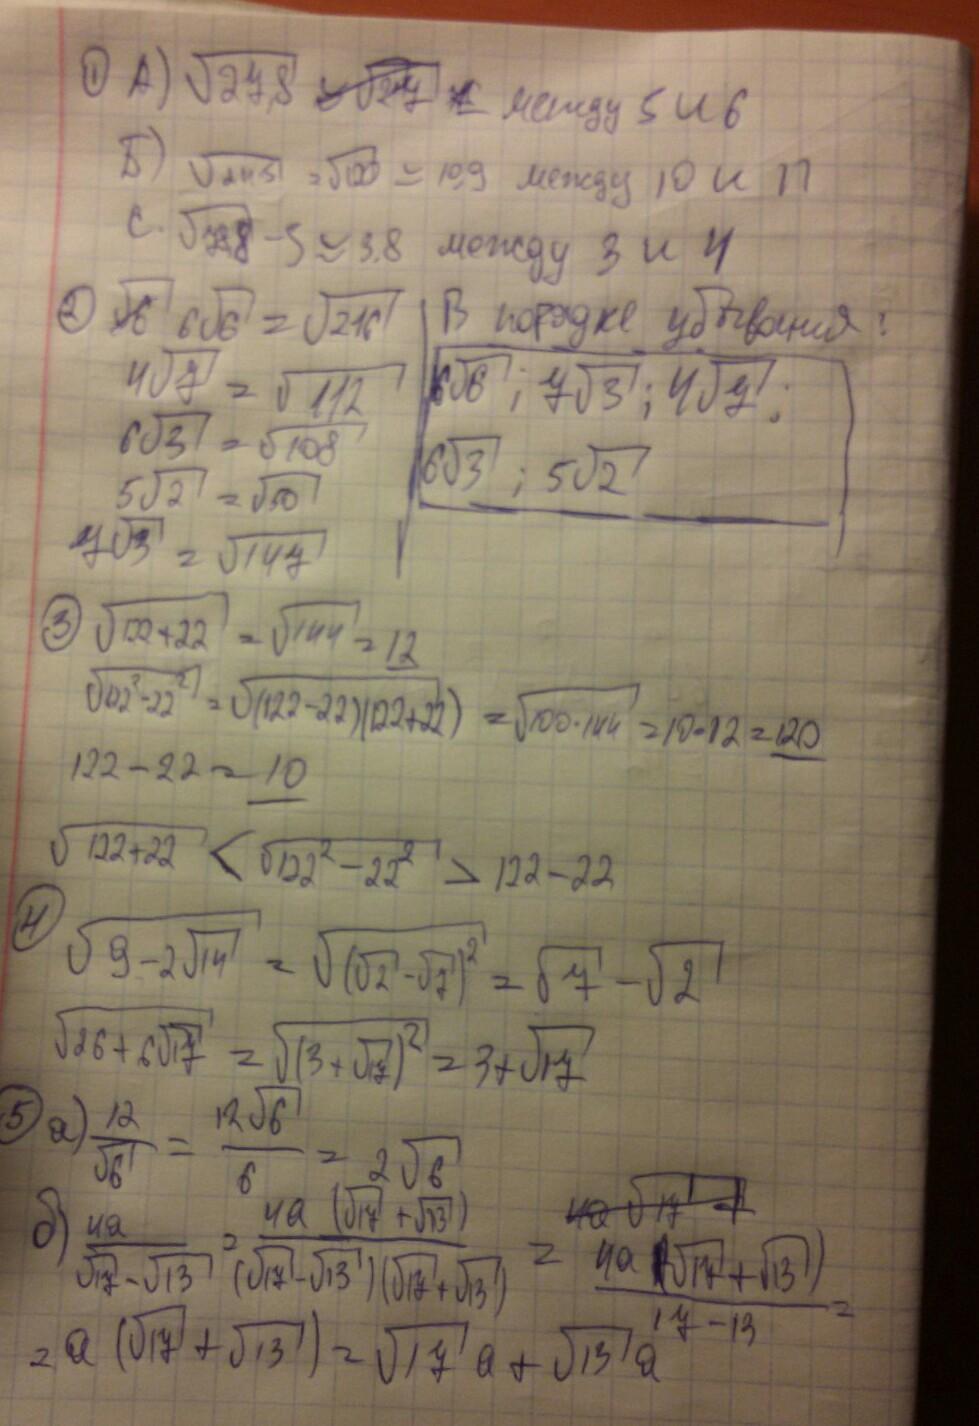 ① А) √27,8 между 5 и 6
Б) ≈ 10,9 между 10 и 11
С. - 5 ≈ 3,8 между 3 и 4
② 6√6 = √216
4√7 = √112
6√3 = √108
5√2 = √50
7√3 = √147
В порядке убывания:
6√6; 7√3; 4√7;
6√3; 5√2
③ √122+22 = √144 = 12
√122²-22² = √(122-22)(122+22) = √100·144 = 10·12 = 120
122-22 = 10
√122+22 < √122²-22² > 122-22
4
√9-2√14 = √(√2-√7)² = √7-√2
√26+6√17 = √(3+√17)² = 3+√17
⑤ а) 12/√6 = 12√6/6 = 2√6
б) 4a/√17-√13 = 4a(√17+√13)/(√17-√13)(√17+√13) = 4a(√17+√13)/17-13 =
= a(√17+√13) = √17a+√13a